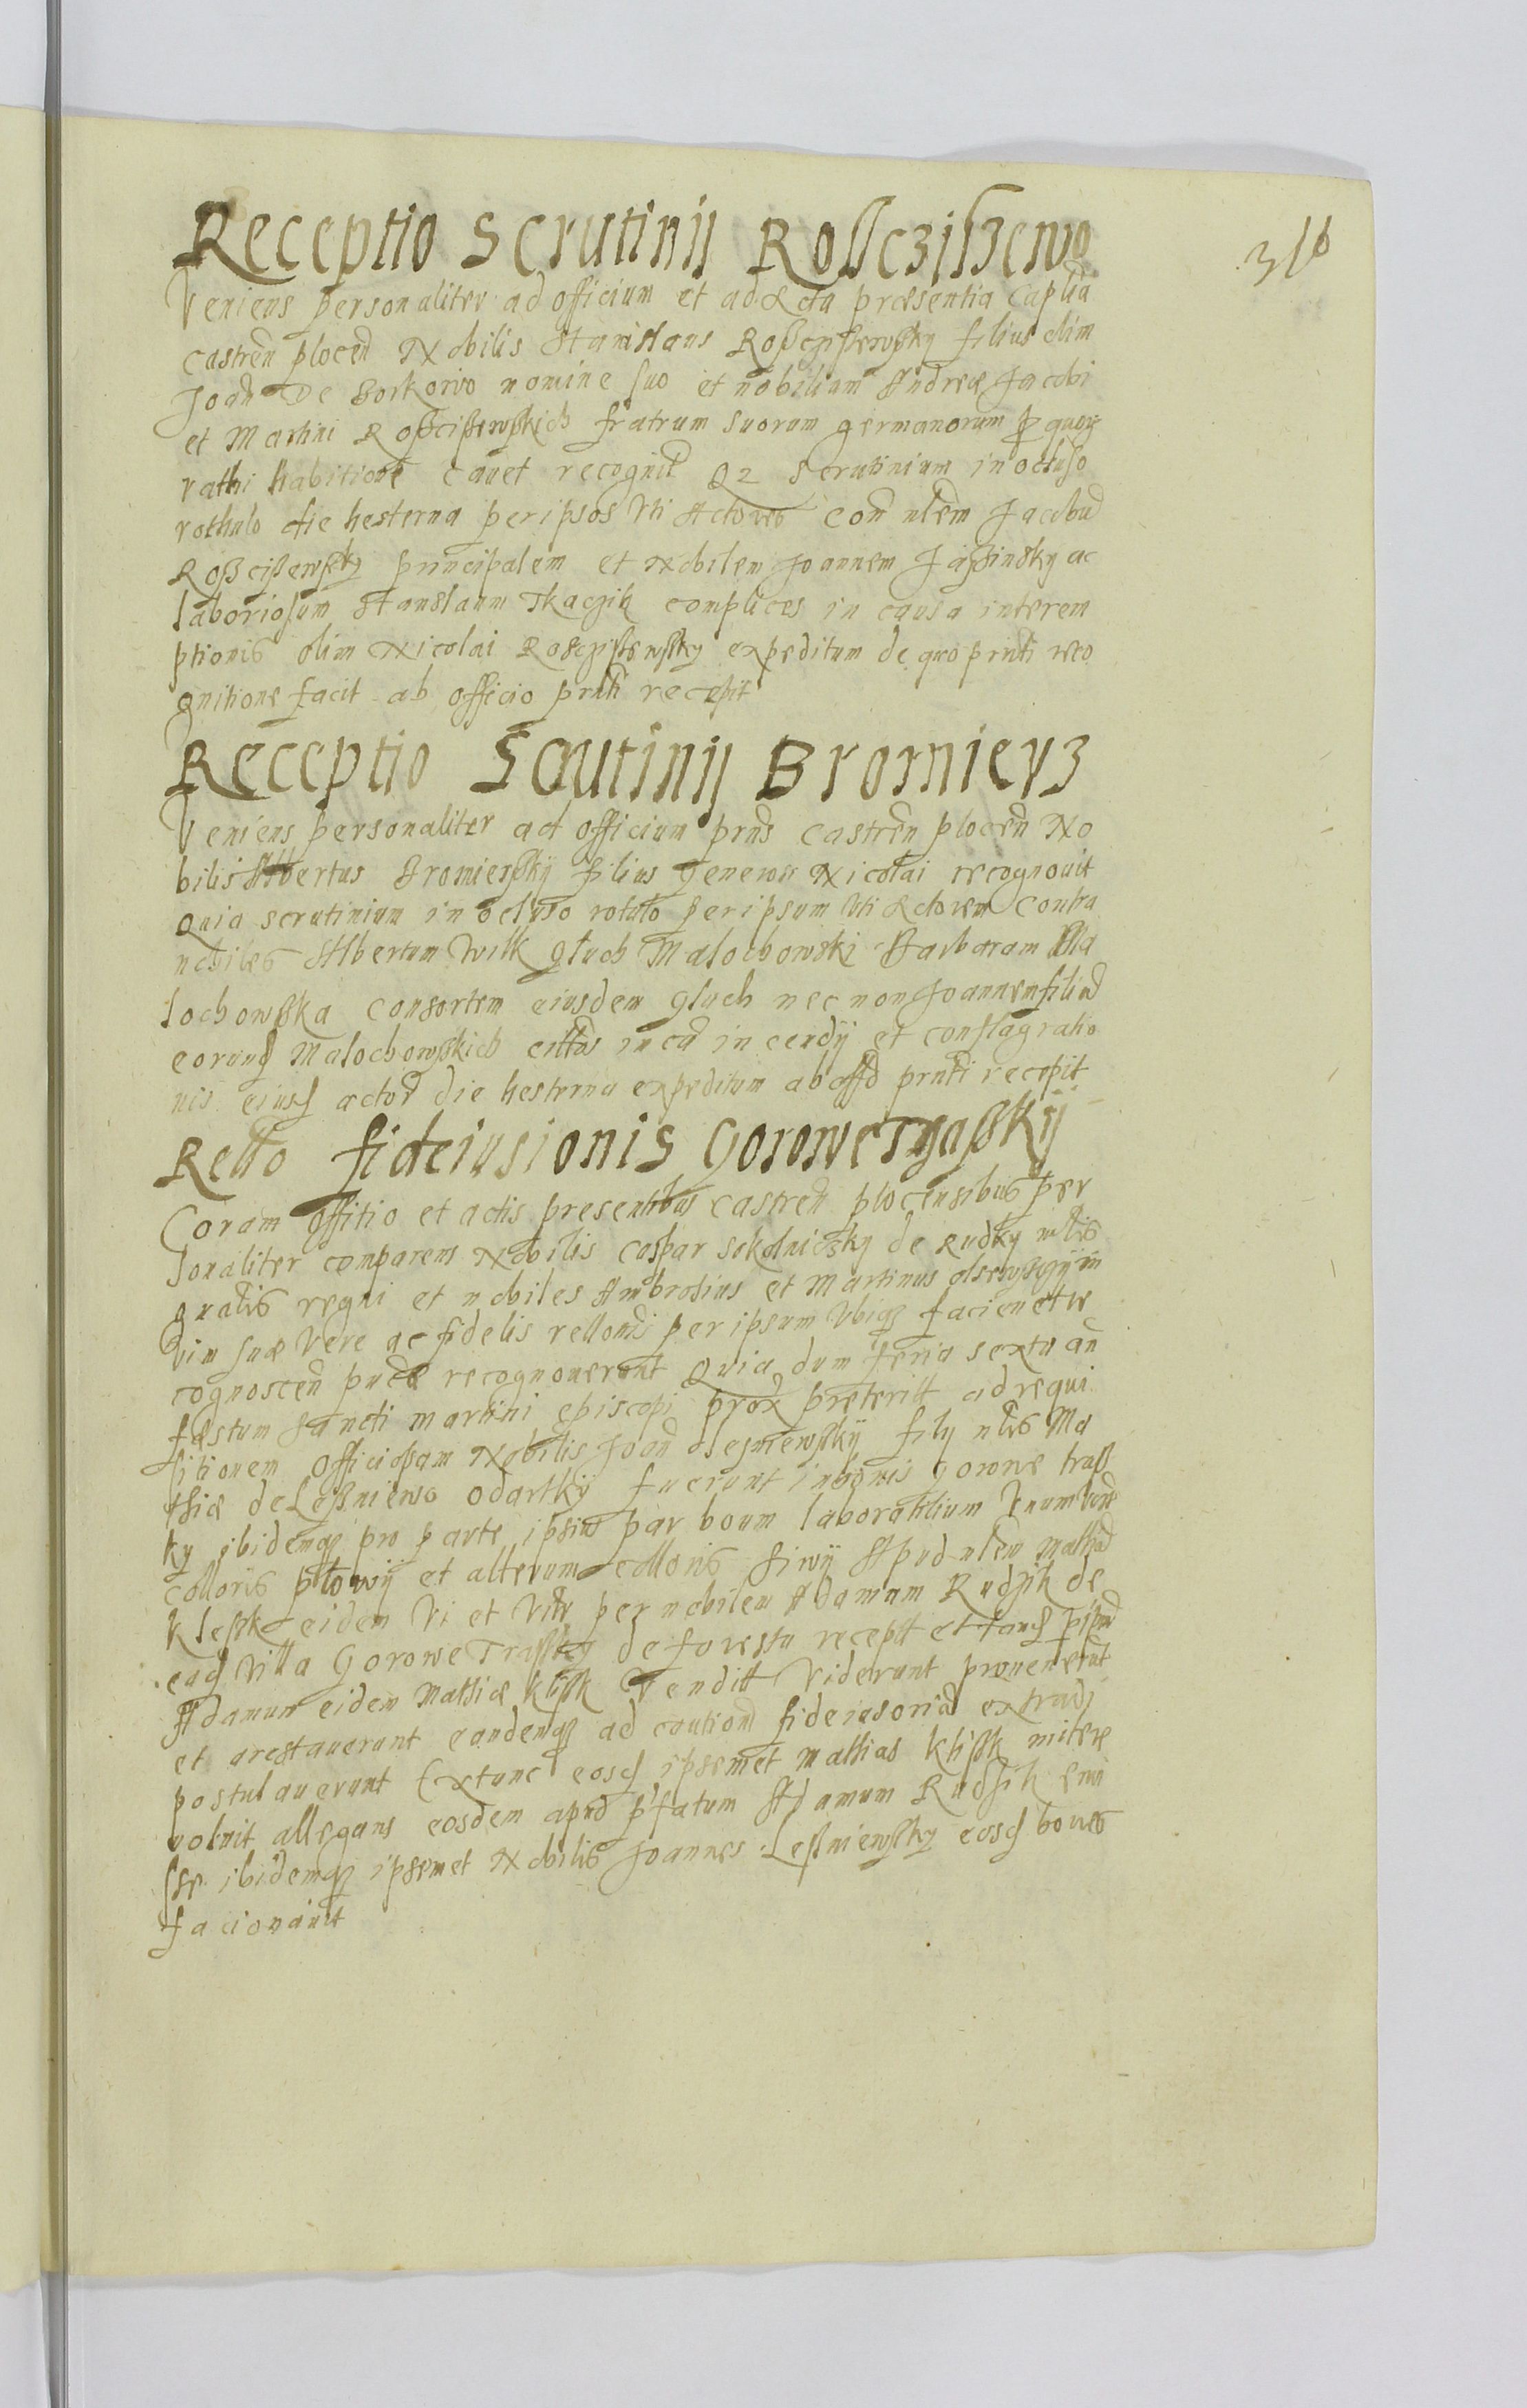 Receptio Scrutinij Roscziszewo
316
Veniens personaliter ad officium et ad Acta præsentia Caplia
castren plocen Nobilis Stanislaus Roßcziszewßky filius olim
Joan De Borkowo nomine suo et nobilium Andreæ Jacobi
et Martini Roßcißewßkich fratrum suorum germanorum p quorz
rathi habitione cauet recognit Q2 scrutinium in ocluso
rothulo die hesterna per ipsos Vti Actores con nlem Jacobu
Roßcißewßky principalem et Nobilem Joannem Jaßinsky ac
laboriosum Stanslaum Tkaczik complices in causa interem
ptionis olim Nicolai Roscziszewsky expeditum de quo prnti reco
gnitione facit ab officio prnti recepit
Receptio Scrutinij Bromierz
Veniens personaliter ad officium prns castren plocen No
bilis Albertus Bromierßkÿ filius Generosi Nicolai recognouit
Quia scrutinium in ocluso rotulo per ipsum Vti Actorem Contra
nobiles Albertum Wilk Gluch Malochowski Barbaram Ma
lochowßka consortem eiusdem Gluch nec non Joannem filiu
eorund Malochowßkich cittos in ca incendÿ et conflagratio
nis eiusd actor die hesterna expeditum ab offo prnti recepit
Rello fideiusionis Gorowe Traßkÿ
Coram offitio et actis presentibus castren plocensibus per
sonaliter comparens Nobilis Caspar Sokolniczky de Rudky mlis
gnalis regni et nobiles Ambrosius et Martinus in
vim suæ Vere ac fidelis rellonis per ipsum Vbiq facien et re
cognoscen pucæ recognouerunt Quia dum feria sexta an
fæstum Sancti Martini episcopi prox preteritt ad requi
sitionem Officiosam Nobilis Joan Lesniewskÿ filÿ nlis Ma
thiæ de Leßniewo Odartky fuerunt in bonis Gorowe traß
ky ibidemq pro parte ipsius par boum laboratilium Vnum
colloris plowÿ et alterum colloris siwÿ Apud nlem Mathia
Kleßk eidem Vi et Vitr per nobilem Adamum Rudzik de
ead Villa Gorowe Traßky de foresta receptt et tand
Adamum eidem Mathiæ Klißk Venditt Viderunt prouenerut
et arestauerunt eandemq ad caution fideiusoria extradj
postulauerunt Extunc eosd ipsemet Mathias Klißk mitere
noluit allegans eosdem apud pfatum Adamum Rudzik emi
sse ibidemq ipsemet Nobilis Joannes Lesniewsky eosd boues
facionauit